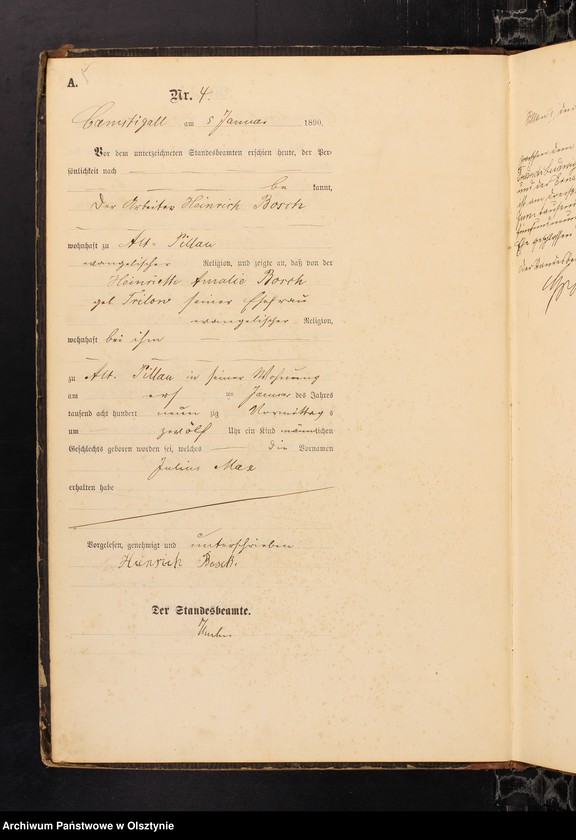 A.
Nr. 4.
Camstigall am 5 Januar 1890.
Vor dem unterzeichneten Standesbeamten erschien heute, der Per-
sönlichkeit nach
be kannt,
Der Arbeiter Heinrich Bosch
wohnhaft zu Alt-Pillau
evangelischer Religion, und zeigte an, daß von der
Heinriette Amalie Bosch
seiner Ehefrau
evangelischer Religion,
wohnhaft bei ihm
zu Alt-Pillau in seiner Wohnung
am Januar des Jahres
tausend acht hundert neun zig Vormittag s
um zwölf Uhr ein Kind männlichen
Geschlechts geboren worden sei, welches die Vornamen
Julius Max
erhalten habe
Vorgelesen, genehmigt und unterschrieben
Heinrich Bosch.
Der Standesbeamte.
Archiwum Państwowe w Olsztynie